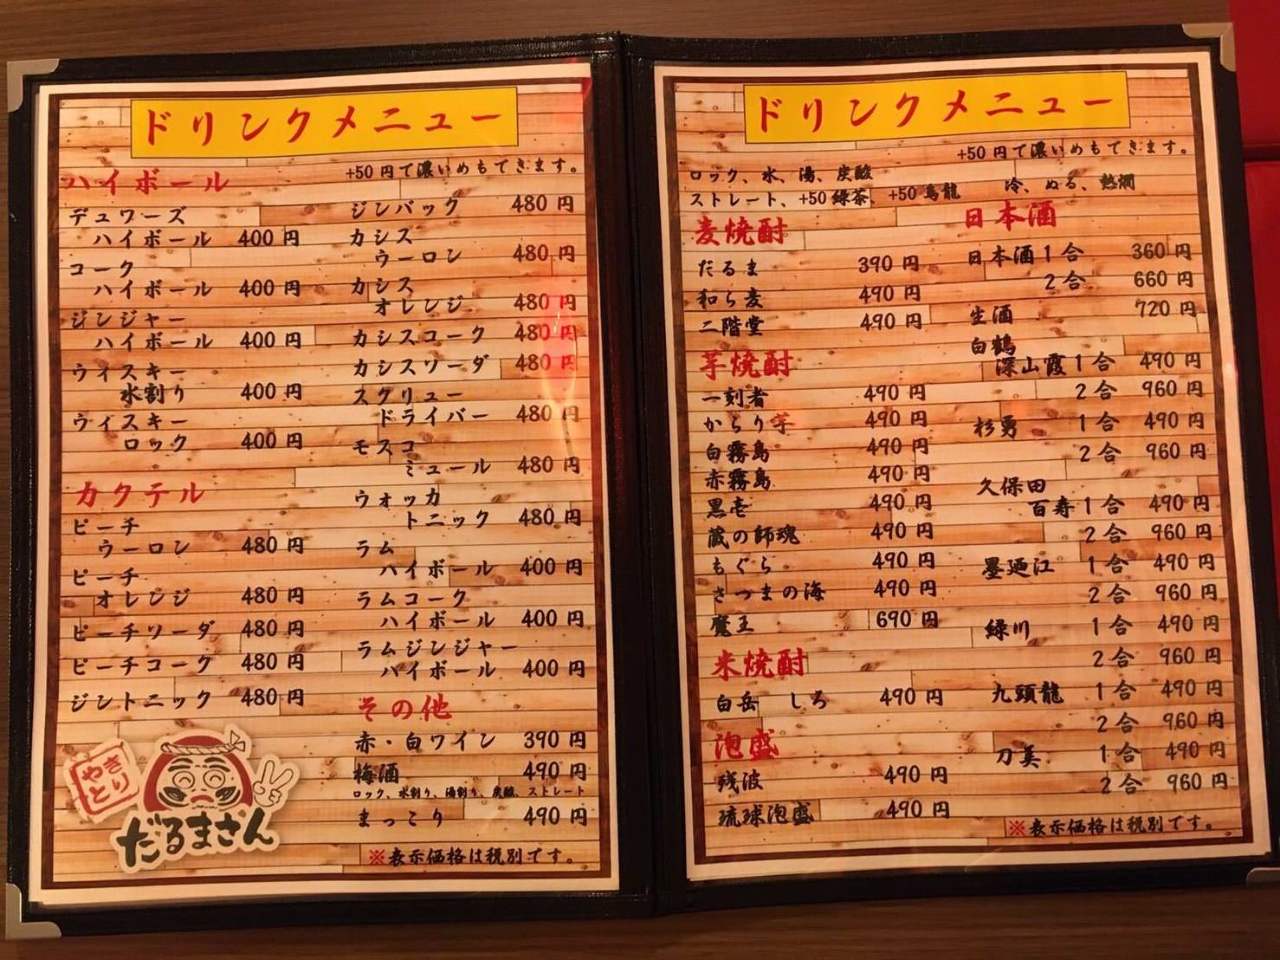 ドリンクメニュー
+50円で濃いめもできます。
ハイボール
デュワーズ
ハイボール 400円
コーク
ハイボール 400円
ジンジャー
ハイボール 400円
ウィスキー
水割り 400円
ウィスキー
ロック 400円
カクテル
ピーチ
ウーロン 480円
ピーチ
オレンジ 480円
ピーチソーダ 480円
ピーチコーク 480円
ジントニック 480円
やきとり
だるまさん
ジンバック 480円
カシス
ウーロン 480円
カシス
オレンジ 480円
カシスコーク 480円
カシスソーダ 480円
スクリュー
ドライバー 480円
モスコ
ミュール 480円
ウォッカ
トニック 480円
ラム
ハイボール 400円
ラムコーク
ハイボール 400円
ラムジンジャー
ハイボール 400円
その他
赤・白ワイン 390円
梅酒 490円
ロック、水割り、湯割り、炭酸、ストレート
まっこり 490円
※表示価格は税別です。
ドリンクメニュー
+50円で濃いめもできます。
ロック、水、湯、炭酸
ストレート、+50緑茶、+50烏龍
麦焼酎
だるま 390円
和ら麦 490円
二階堂 490円
芋焼酎
一刻者 490円
からり芋 490円
白霧島 490円
赤霧島 490円
黒壱 490円
蔵の師魂 490円
もぐら 490円
さつまの海 490円
魔王 690円
米焼酎
白岳 しろ 490円
泡盛
残波 490円
琉球泡盛 490円
冷、ぬる、熱燗
日本酒
日本酒1合 360円
2合 660円
生酒 720円
白鶴
深山霞1合 490円
2合 960円
杉勇 1合 490円
2合 960円
久保田
百寿1合 490円
2合 960円
墨廼江 1合 490円
2合 960円
緑川 1合 490円
2合 960円
九頭龍 1合 490円
2合 960円
刀美 1合 490円
2合 960円
※表示価格は税別です。